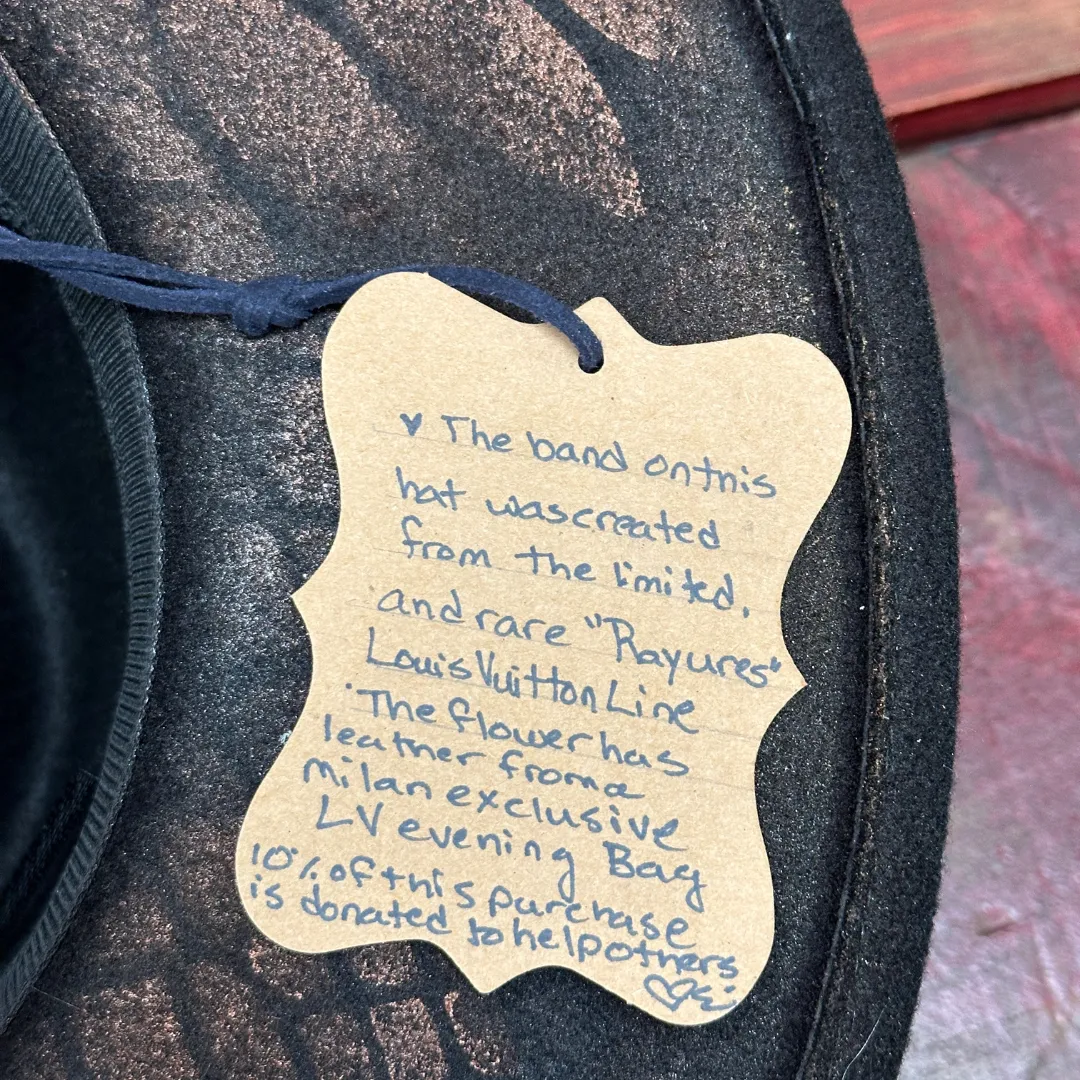 ♥ The band on this
hat was created
from the limited,
and rare "Rayures"
Louis Vuitton Line
The flower has
leather from a
milan exclusive
LV evening Bag
10% of this purchase
is donated to help others